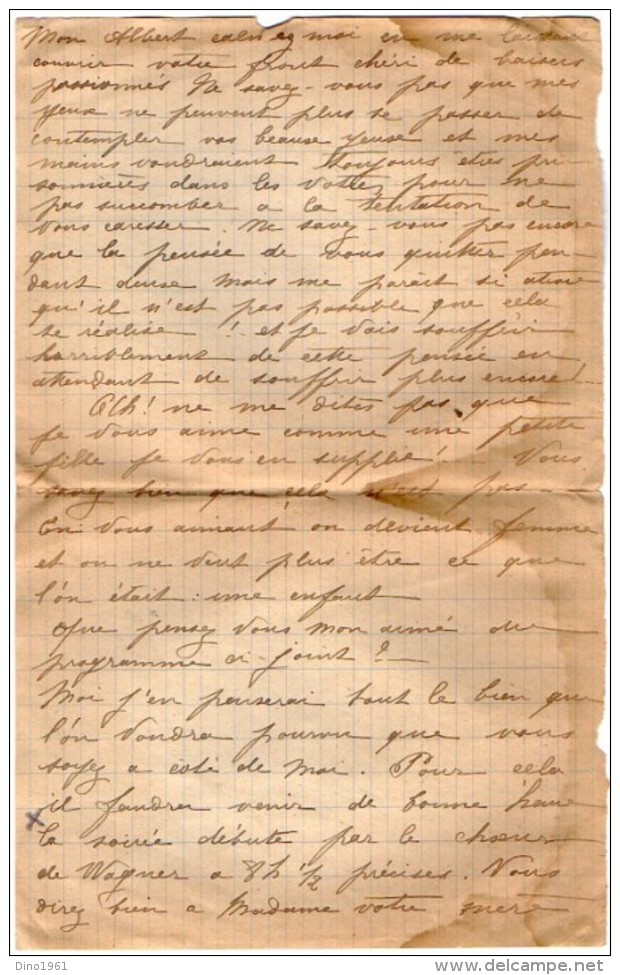 Mon Albert calmez moi en me laissant
couvrir votre front chéri de baisers
passionnés Ne savez-vous pas que mes
yeux ne peuvent plus se passer de
contempler vos beaux yeux et mes
mains voudraient toujours êtres pri
sonnières dans les votres pour ne
pas succomber a la tentation de
vous caresser. Ne savez-vous pas encore
que la pensée de vous quitter pen-
dant deux mois me parait si atroce
qu'il n'est pas possible que cela
se réalise ! et je vais souffrir
horriblement de cette pensée en
attendant de souffrir plus encore !..
Ah! ne me dites pas que
je vous aime comme une petite
fille je vous en supplie ! - Vous
savez bien que cela n'est pas -
En vous aimant on devient femme
et on ne veut plus être ce que
l'on était : une enfant
Que pensez vous mon aimé du
programme ci-joint ? -
Moi j'en penserai tout le bien que
l'on voudra pourvu que vous
soyez a coté de moi. Pour cela
il faudra venir de bonne heure
x la soirée débute par le chœur
de Wagner a 8h 1/2 précises. Vous
direz bien a Madame votre mère
Dino1961